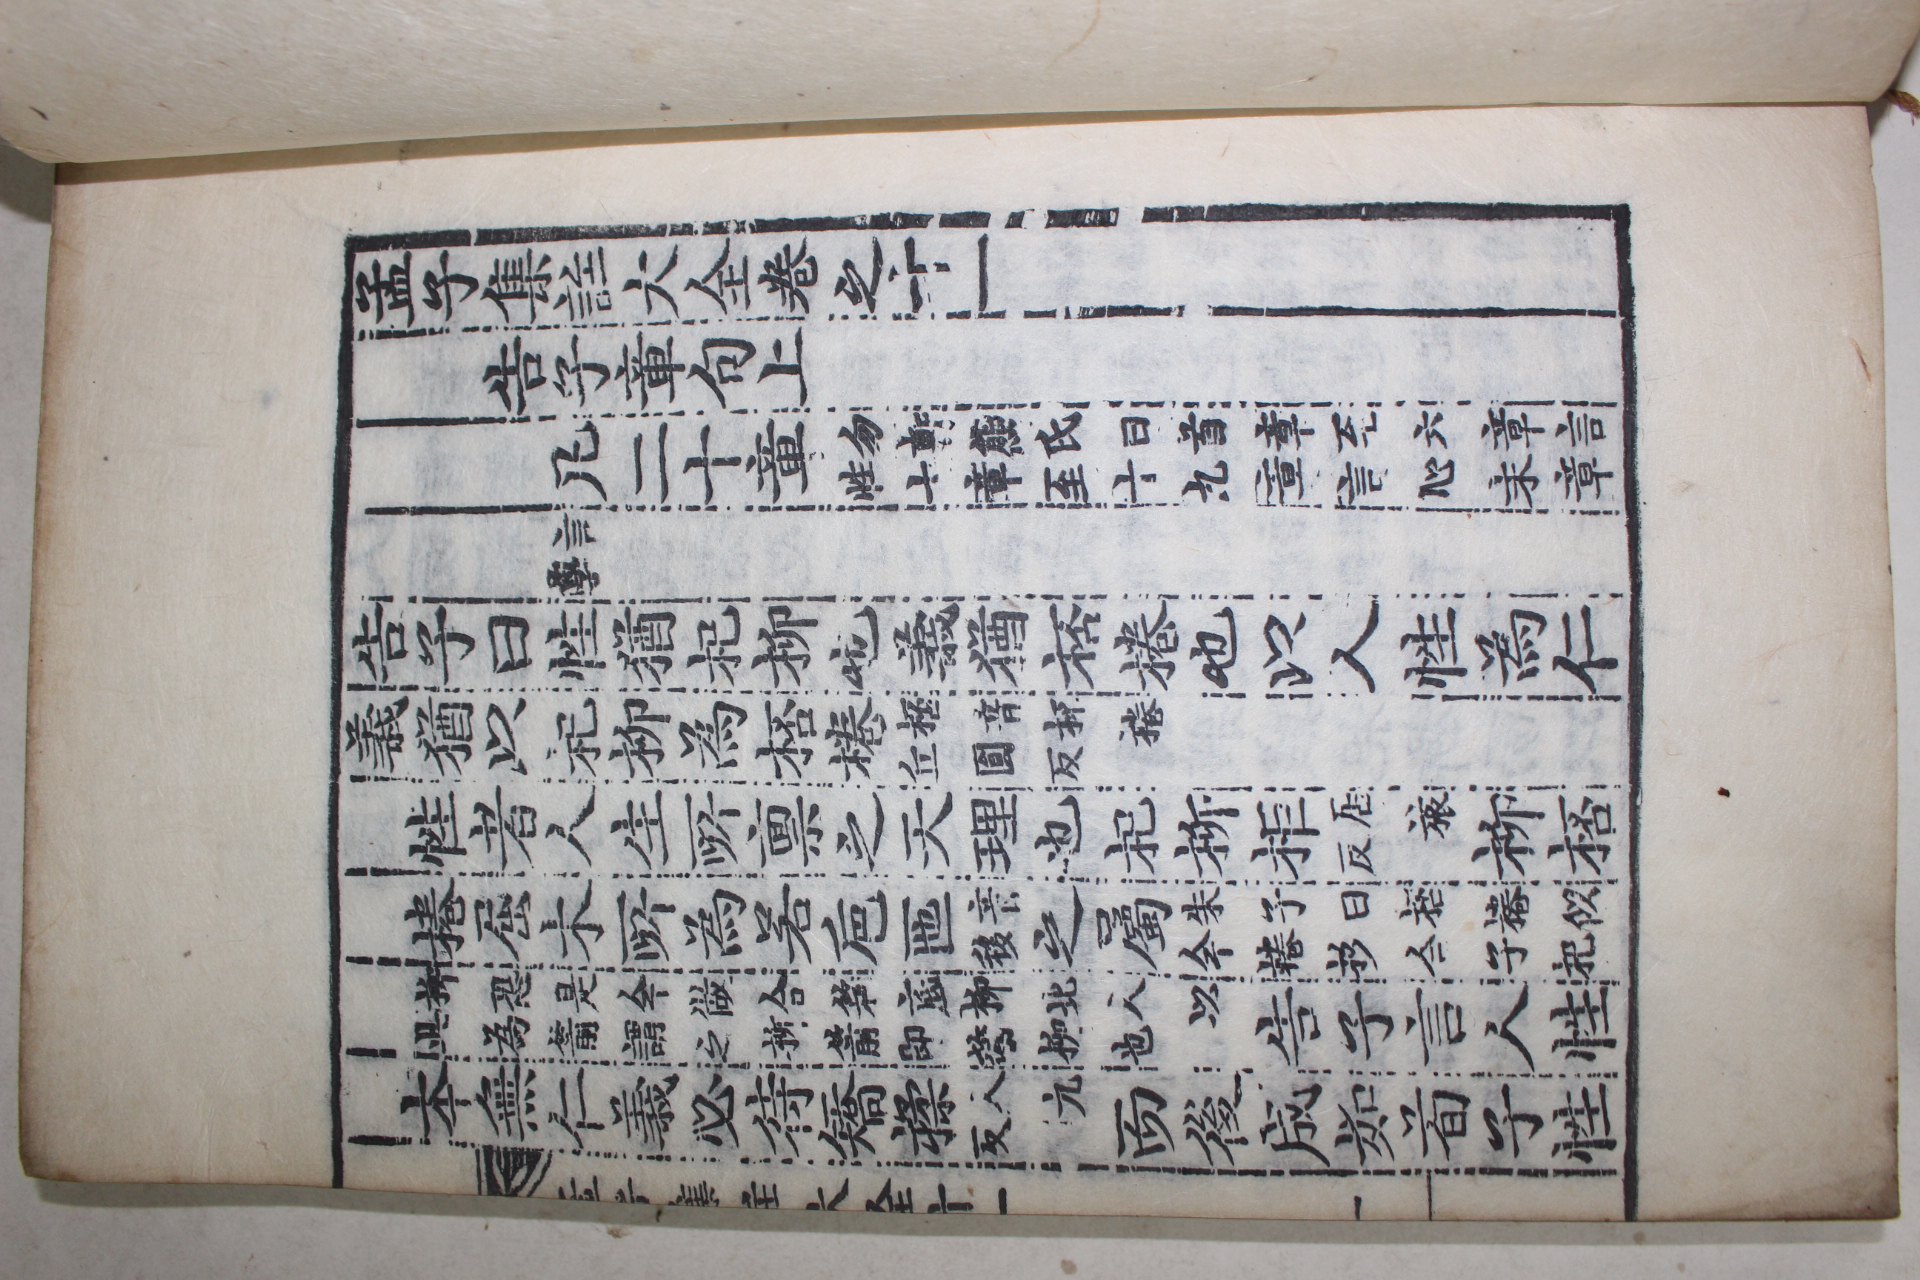 孟子集註大全卷之十一
告子章句上
凡二十章勿軒熊氏曰首章至六章言性七章至十九章言心末章
言學
告子曰性猶杞柳也義猶桮棬也以人性為仁
義猶以杞柳為桮棬桮音杯棬丘圓反
性者人生所禀之天理也杞柳柜居旅反柳桮
棬屈木所為若巵匜音移之屬朱子曰桮棬似今棬杉合子杞
柳恐是今做合箱底柳北人以此為箭謂之柳箭即蒲柳也告子言人性
本無仁義必待矯揉人九反而後成如荀子性
孟子集註大全十一
一